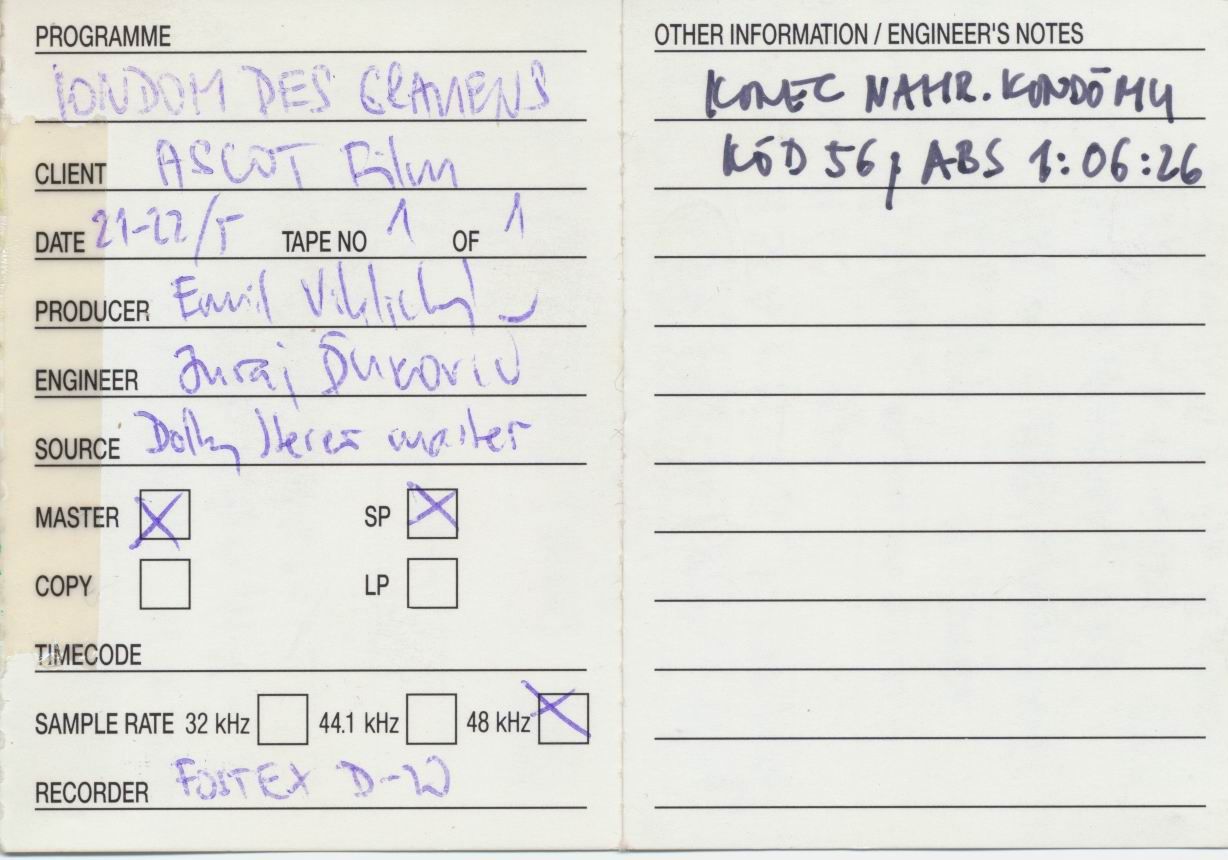 PROGRAMME
KONDOM DES GRAUENS
CLIENT ASCOT Film
DATE 21-22/5 TAPE NO 1 OF 1
PRODUCER Emil Viklický
ENGINEER Juraj Ďurovič
SOURCE Dolby Stereo master
MASTER SP
COPY LP
TIMECODE
SAMPLE RATE 32 kHz 44.1 kHz 48 kHz
RECORDER FOSTEX D-20
OTHER INFORMATION / ENGINEER'S NOTES
KONEC NAHR. KONDÓMU
KÓD 56, ABS 1:06:26